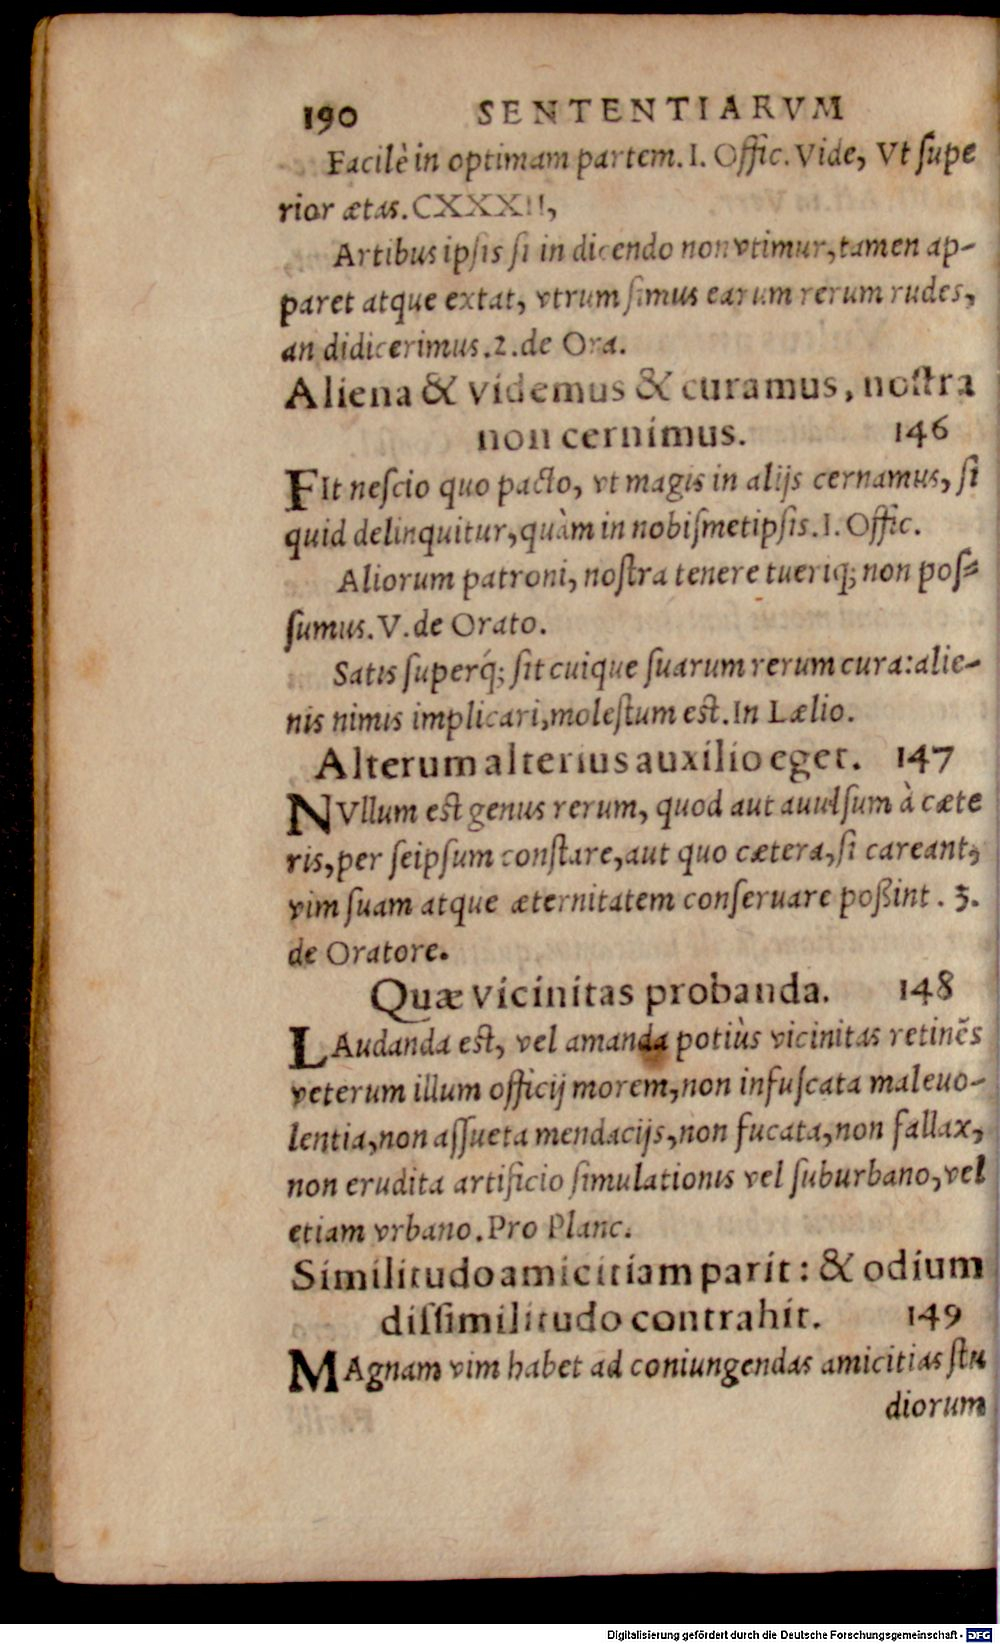 190 SENTENTIARVM
Facilè in optimam partem. I. Offic. Vide, Vt supe
rior ætas. CXXXII,
Artibus ipsis si in dicendo non vtimur, tamen ap-
paret atque extat, vtrum simus earum rerum rudes,
an didicerimus. 2. de Ora.
Aliena & videmus & curamus, nostra
non cernimus. 146
FIt nescio quo pacto, vt magis in alijs cernamus, si
quid delinquitur, quàm in nobismetipsis. I. Offic.
Aliorum patroni, nostra tenere tueriq; non pos-
sumus. V. de Orato.
Satis superq́; sit cuique suarum rerum cura: alie-
nis nimis implicari, molestum est. In Lælio.
Alterum alterius auxilio eget. 147
NVllum est genus rerum, quod aut auulsum à cæte
ris, per seipsum constare, aut quo cætera, si careant,
vim suam atque æternitatem conseruare poßint. 3.
de Oratore.
Quæ vicinitas probanda. 148
LAudanda est, vel amanda potiùs vicinitas retinẽs
veterum illum officij morem, non infuscata maleuo-
lentia, non assueta mendacijs, non fucata, non fallax,
non erudita artificio simulationis vel suburbano, vel
etiam vrbano. Pro Planc.
Similitudo amicitiam parit: & odium
dissimilitudo contrahit. 149
MAgnam vim habet ad coniungendas amicitias stu
diorum
Digitalisierung gefördert durch die Deutsche Forschungsgemeinschaft - DFG